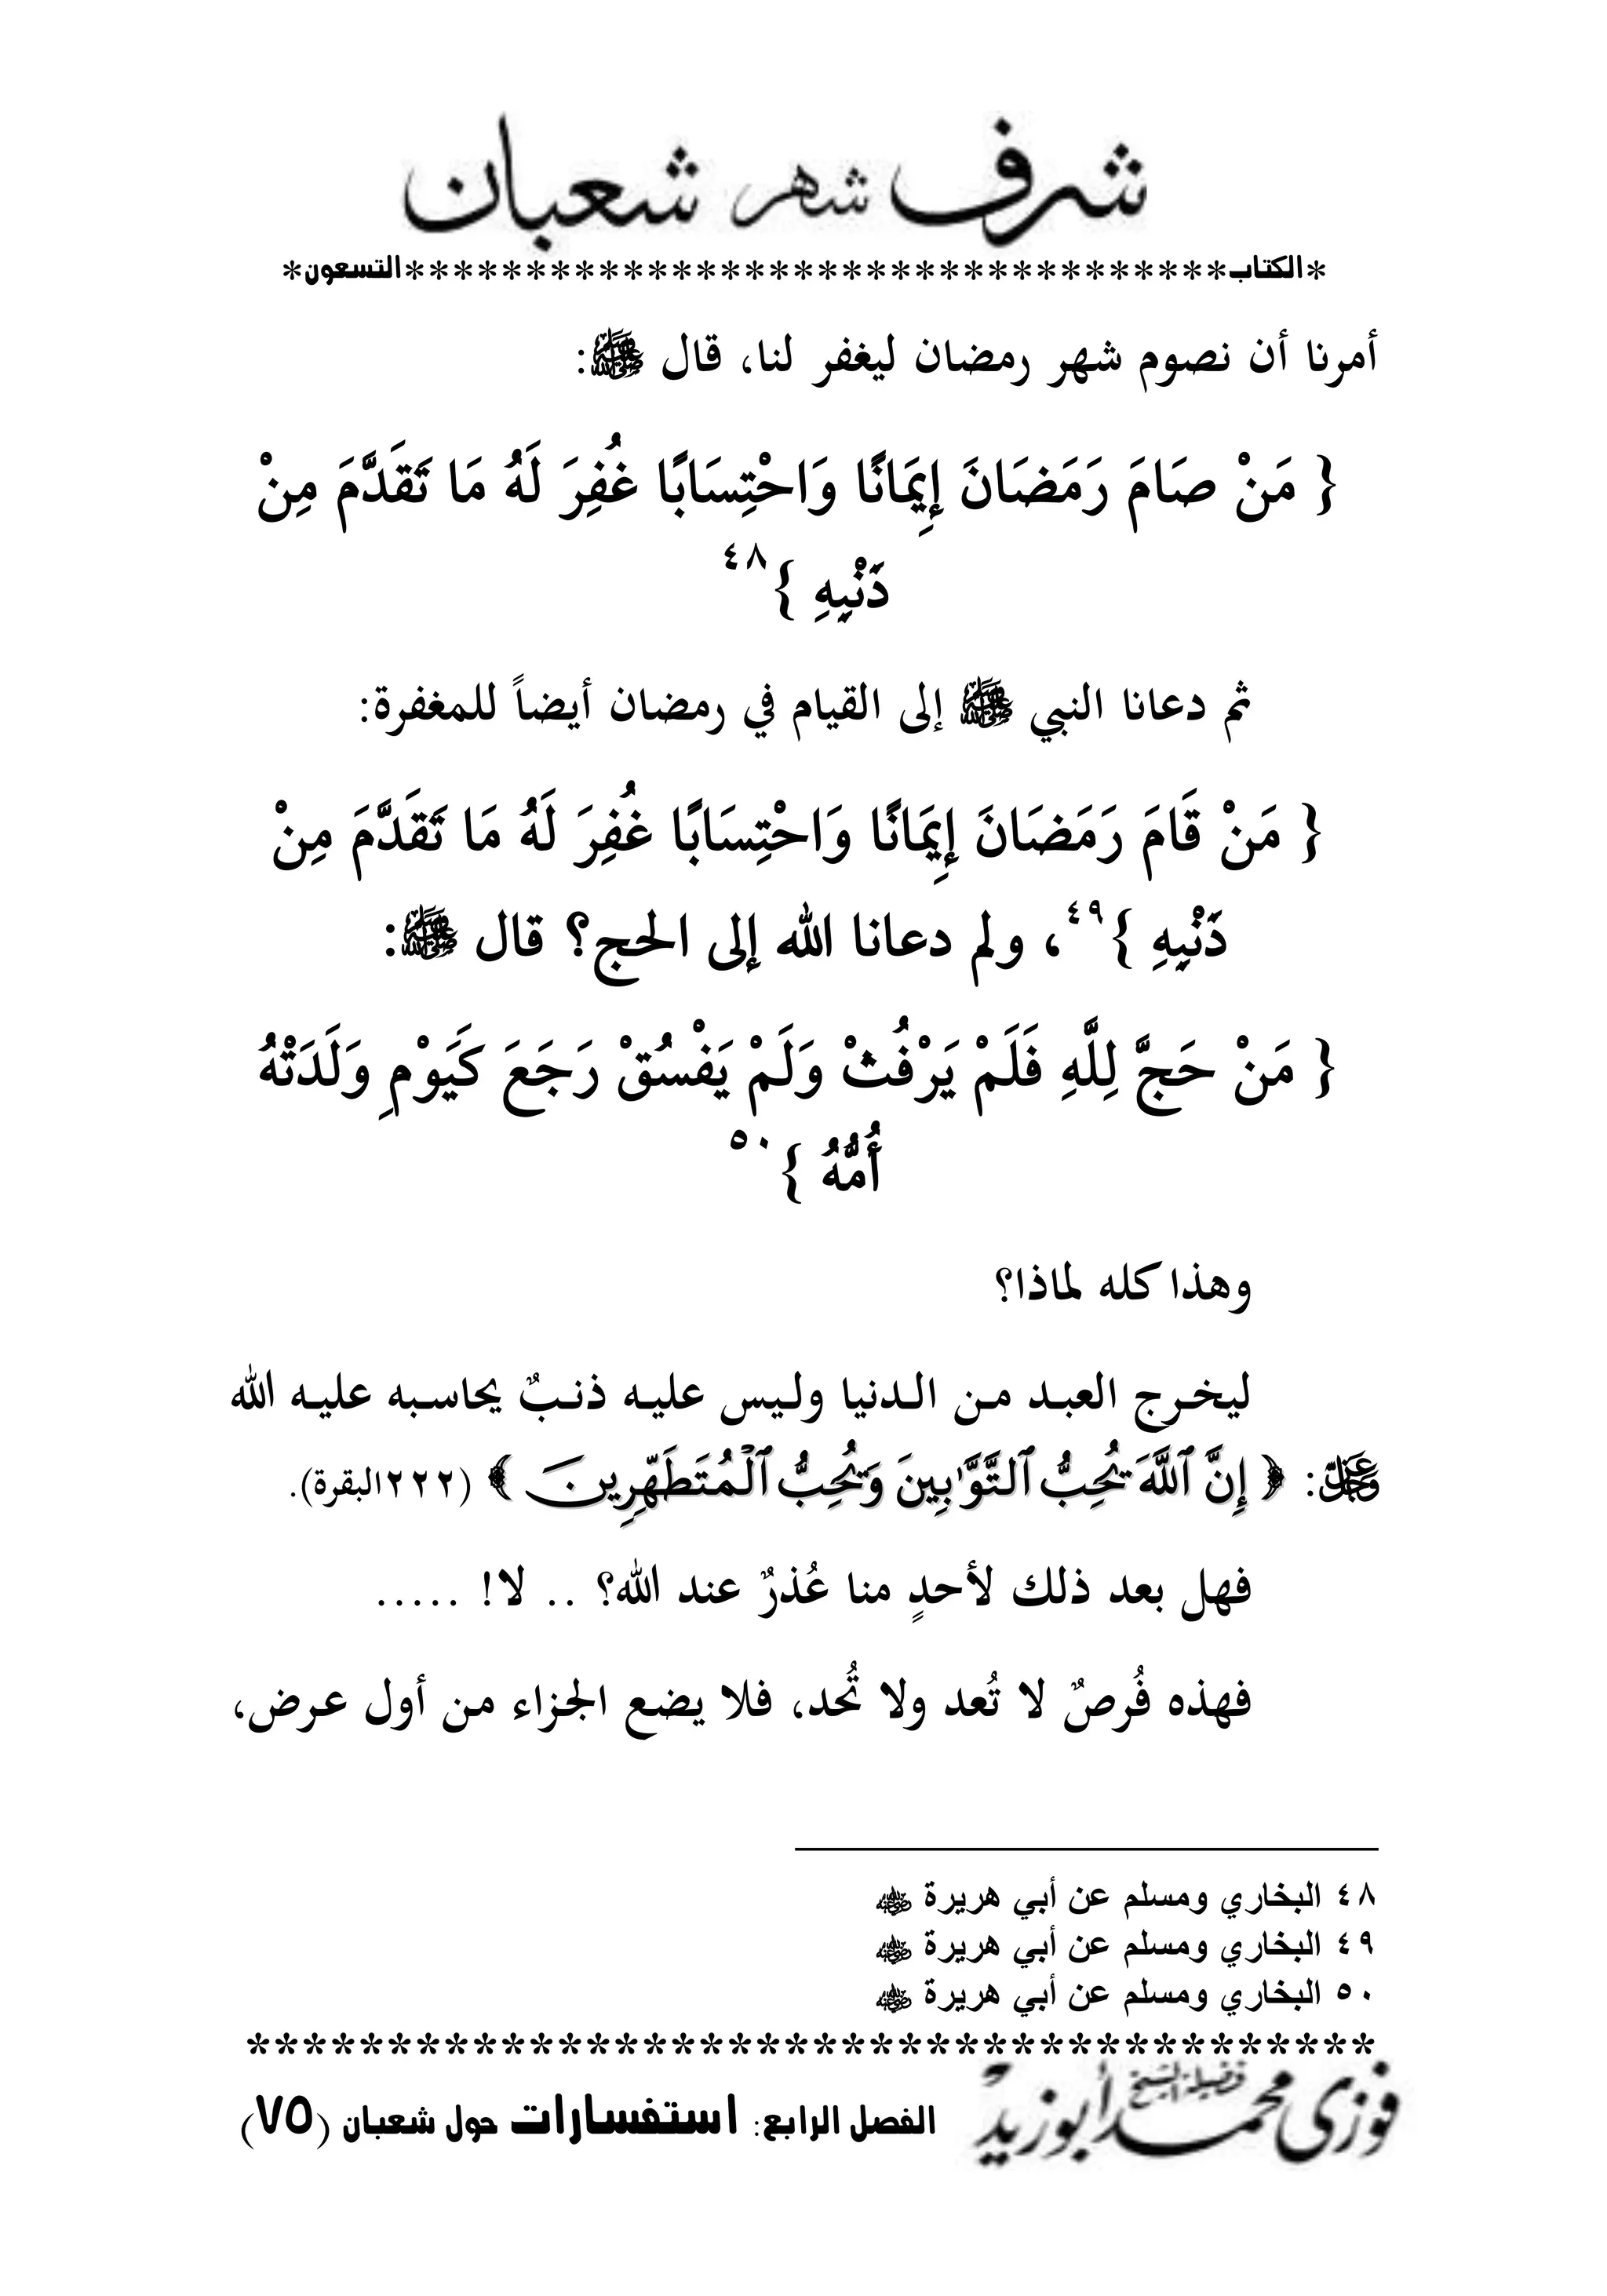 شرف شهر شعبان
*الكتاب**********************************التسعون*
أمرنا أن نصوم شهر رمضان ليغفر لنا، قال ﷺ:
{ مَنْ صَامَ رَمَضَانَ إِيمَانًا وَاحْتِسَابًا غُفِرَ لَهُ مَا تَقَدَّمَ مِنْ
ذَنْبِهِ }٤٨
ثم دعانا النبي ﷺ إلى القيام في رمضان أيضاً للمغفرة:
{ مَنْ قَامَ رَمَضَانَ إِيمَانًا وَاحْتِسَابًا غُفِرَ لَهُ مَا تَقَدَّمَ مِنْ
ذَنْبِهِ }٤٩، ولم دعانا الله إلى الحج؟ قال ﷺ:
{ مَنْ حَجَّ لِلَّهِ فَلَمْ يَرْفُثْ وَلَمْ يَفْسُقْ رَجَعَ كَيَوْمِ وَلَدَتْهُ
أُمُّهُ }٥٠
وهذا كله لماذا؟
ليخرج العبد من الدنيا وليس عليه ذنبٌ يحاسبه عليه الله
عَزَّ وَجَلَّ: ﴿ إِنَّ ٱللَّهَ يُحِبُّ ٱلتَّوَّٰبِينَ وَيُحِبُّ ٱلْمُتَطَهِّرِينَ ﴾ (٢٢٢البقرة).
فهل بعد ذلك لأحدٍ منا عُذرٌ عند الله؟ .. لا! .....
فهذه فُرصٌ لا تُعد ولا تُحد، فلا يضع الجزاء من أول عرض،
٤٨ البخاري ومسلم عن أبي هريرة رضي الله عنه
٤٩ البخاري ومسلم عن أبي هريرة رضي الله عنه
٥٠ البخاري ومسلم عن أبي هريرة رضي الله عنه
****************************************
فضيلة الشيخ فوزى محمد أبوزيد
الفصل الرابع: استفسارات حول شعبان (٧٥)